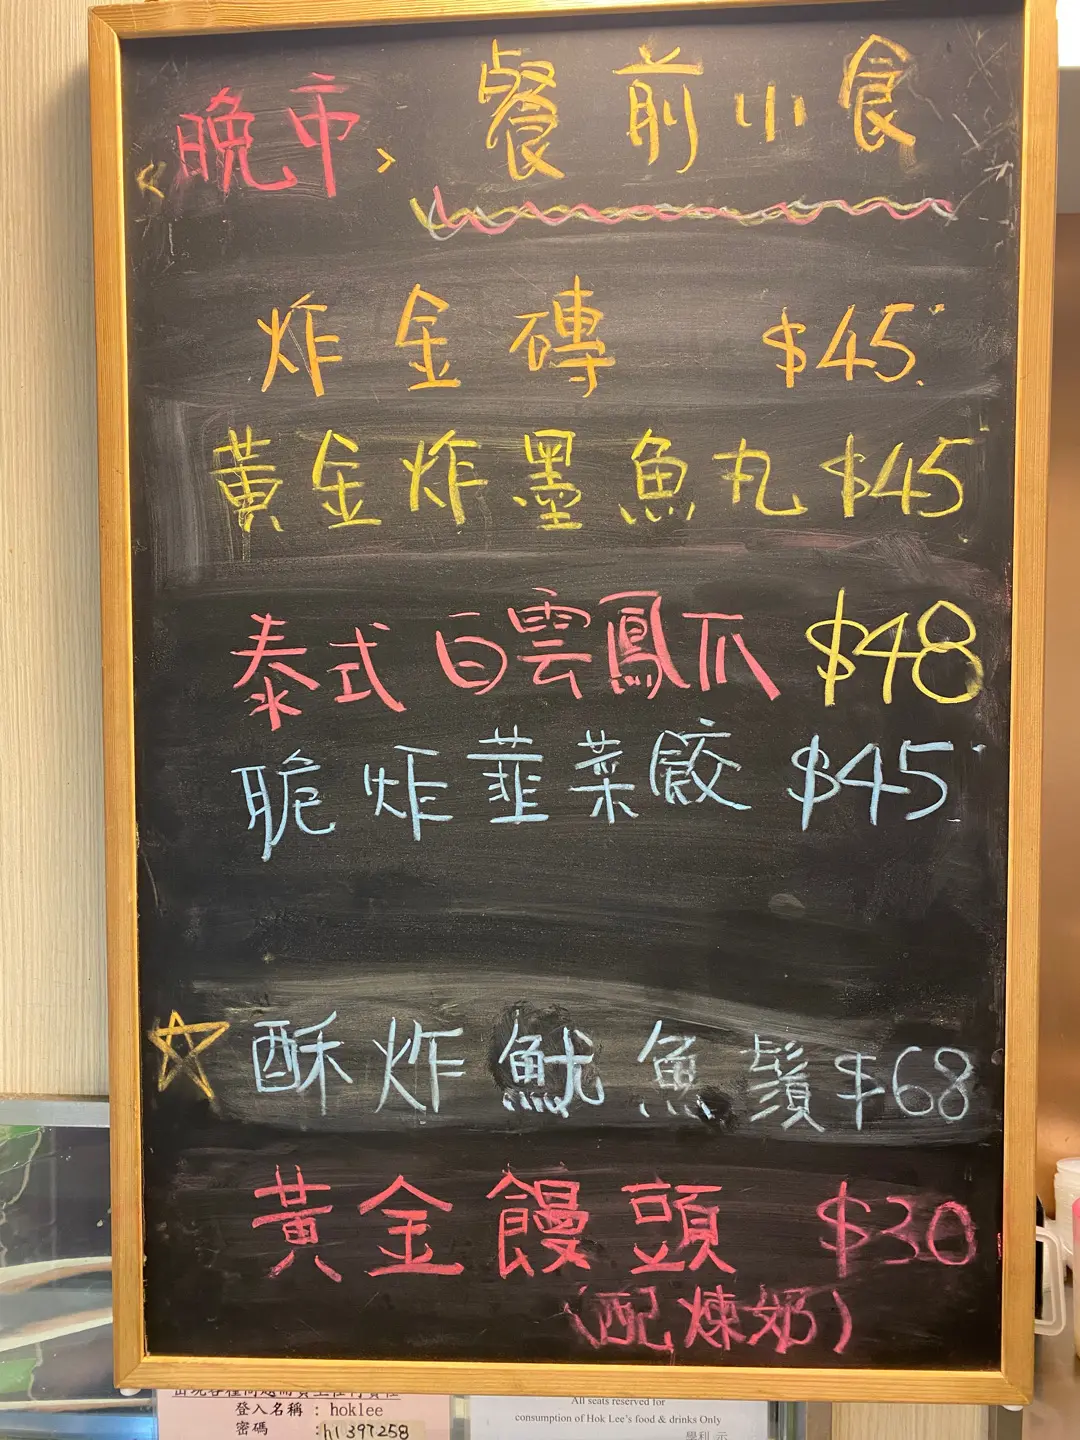 <晚市> 餐前小食
炸金磚 $45.
黃金炸墨魚丸 $45
泰式白雲鳳爪 $48
脆炸韮菜餃 $45
酥炸魷魚鬚 $68
黃金饅頭 $30
(配煉奶)
登入名稱 : hoklee
密碼 : hl397258
All seats reserved for
consumption of Hok Lee's food & drinks Only